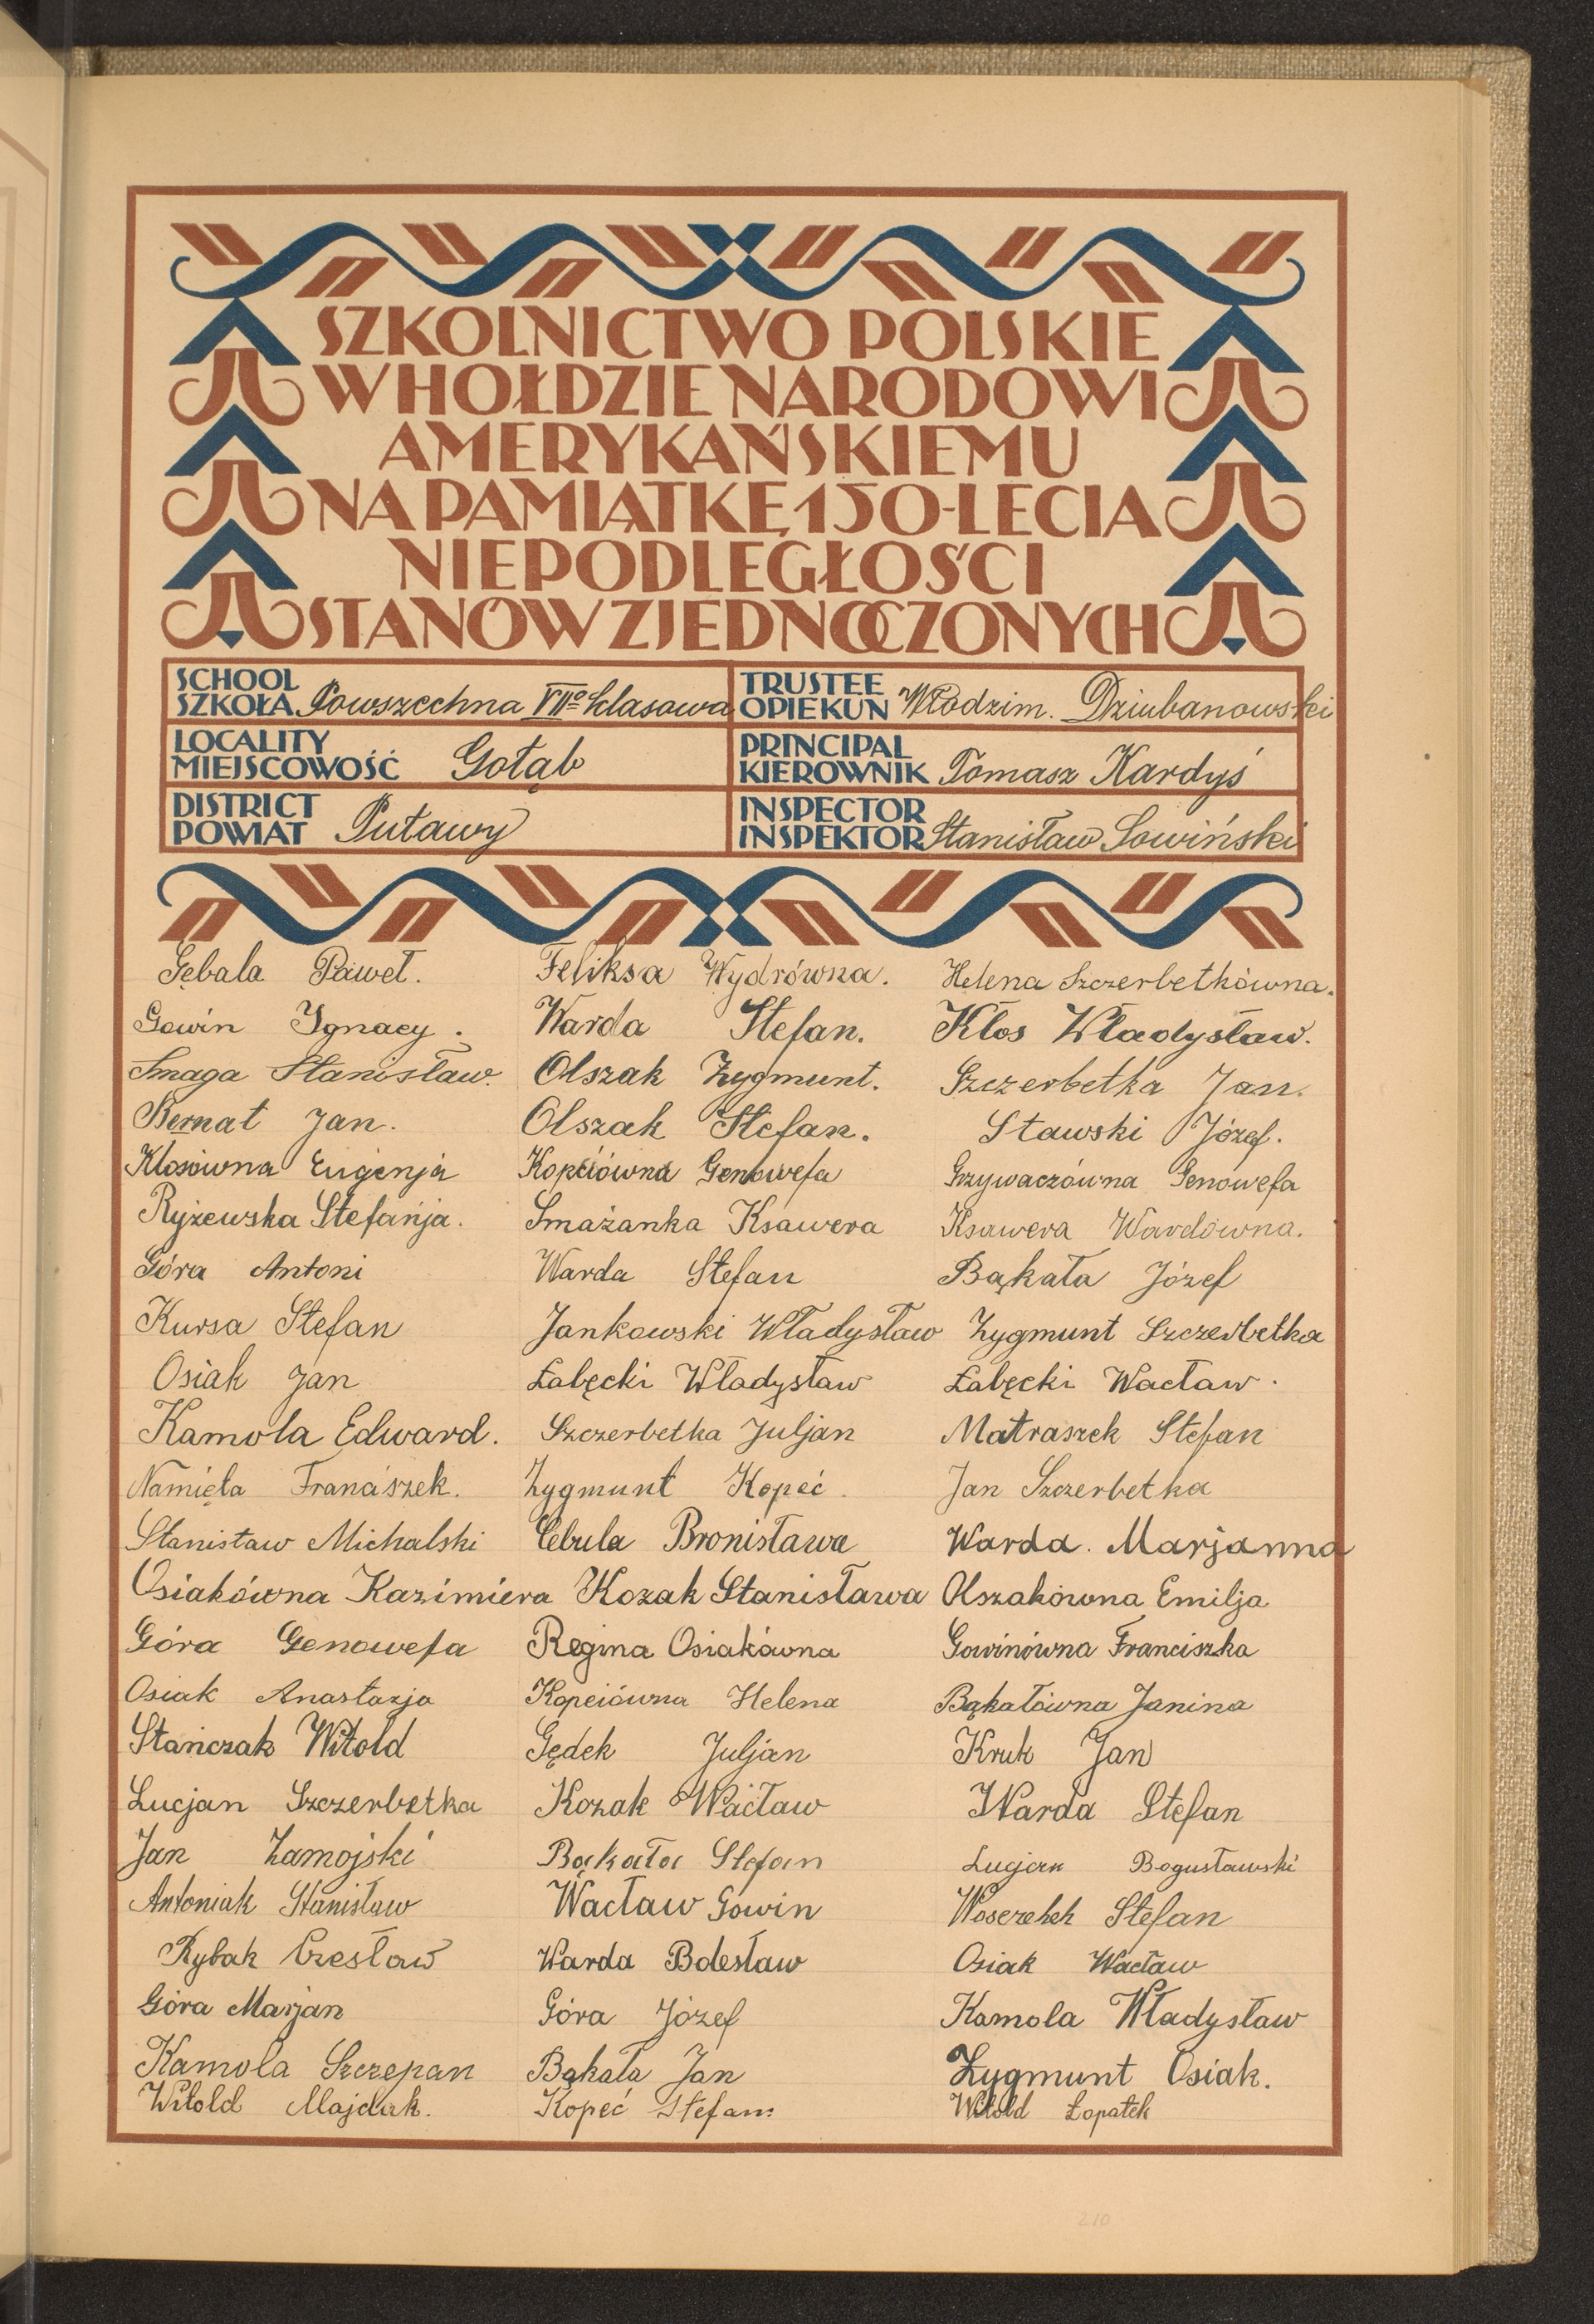 SZKOLNICTWO POLSKIE
W HOŁDZIE NARODOWI
AMERYKAŃSKIEMU
NA PAMIĄTKĘ 150-LECIA
NIEPODLEGŁOŚCI
STANÓW ZJEDNOCZONYCH
SCHOOL
SZKOŁA Powszechna VIIo klasowa
TRUSTEE
OPIEKUN Włodzim. Dziubanowski
LOCALITY
MIEJSCOWOŚĆ Gołąb
PRINCIPAL
KIEROWNIK Tomasz Kardyś
DISTRICT
POWIAT Puławy
INSPECTOR
INSPEKTOR Stanisław Sowiński
Gębala Paweł. Feliksa Wydrówna. Helena Szczerbetkówna.
Gowin Ignacy. Warda Stefan. Kłos Władysław.
Smaga Stanisław. Olszak Zygmunt. Szczerbetka Jan.
Bernat Jan. Olszak Stefan. Stawski Józef.
Kłosówna Eugenja Kopciówna Genowefa Grzywaczówna Genowefa
Ryżewska Stefanja. Smażanka Ksawera Ksawera Wardówna.
Góra Antoni Warda Stefan Bąkała Józef
Kursa Stefan Jankowski Władysław Zygmunt Szczerbetka
Osiak Jan Łabęcki Władysław Łabęcki Wacław.
Kamola Edward. Szczerbetka Juljan Matraszek Stefan
Namięta Franciszek. Zygmunt Kopeć. Jan Szczerbetka
Stanisław Michalski Cebula Bronisława Warda. Marjanna
Osiakówna Kazimiera Kozak Stanisława Olszakówna Emilja
Góra Genowefa Regina Osiakówna Gowinówna Franciszka
Osiak Anastazja Kopciówna Helena Bąkałówna Janina
Stańczak Witold Gędek Juljan Kruk Jan
Lucjan Szczerbetka Kozak Wacław Warda Stefan
Jan Zamojski Bąkała Stefan Lucjan Bogusławski
Antoniak Stanisław Wacław Gowin Stefan
Rybak Czesław Warda Bolesław Osiak Wacław
Góra Marjan Góra Józef Kamola Władysław
Kamola Szczepan Bąkała Jan Zygmunt Osiak.
Witold Majdak. Kopeć Stefan Witold Łopatek
210